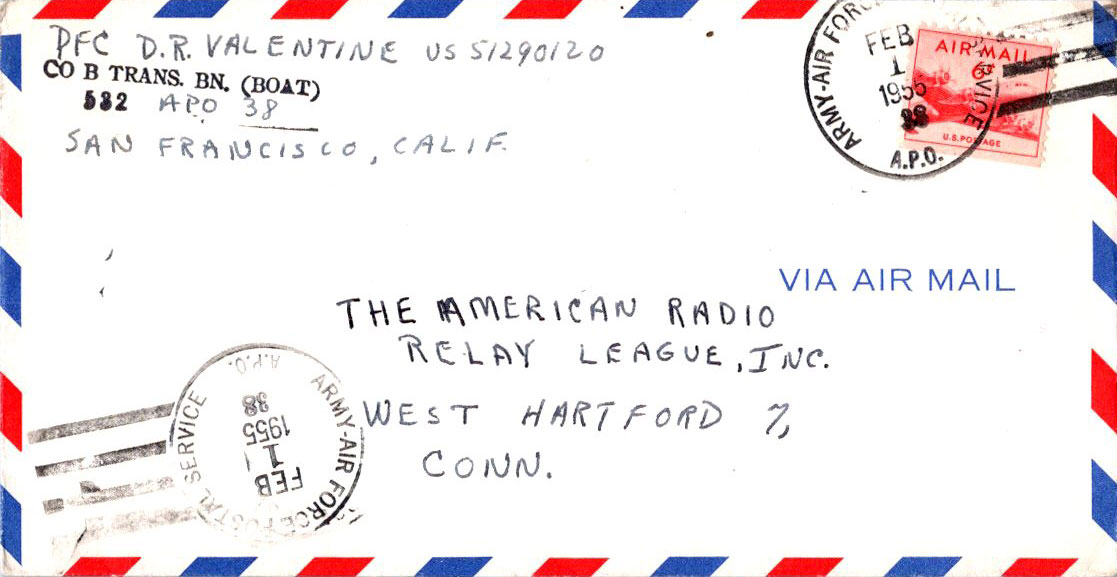 PFC D.R. VALENTINE US 51290120
CO B TRANS. BN. (BOAT)
532 APO 38
SAN FRANCISCO, CALIF.
ARMY-AIR FORCE SERVICE
FEB
1
1955
38
A.P.O.
AIR MAIL
6¢
U.S. POSTAGE
VIA AIR MAIL
THE AMERICAN RADIO
RELAY LEAGUE, INC.
WEST HARTFORD 7,
CONN.
ARMY-AIR FORCE POSTAL SERVICE
FEB
1
1955
38
A.P.O.